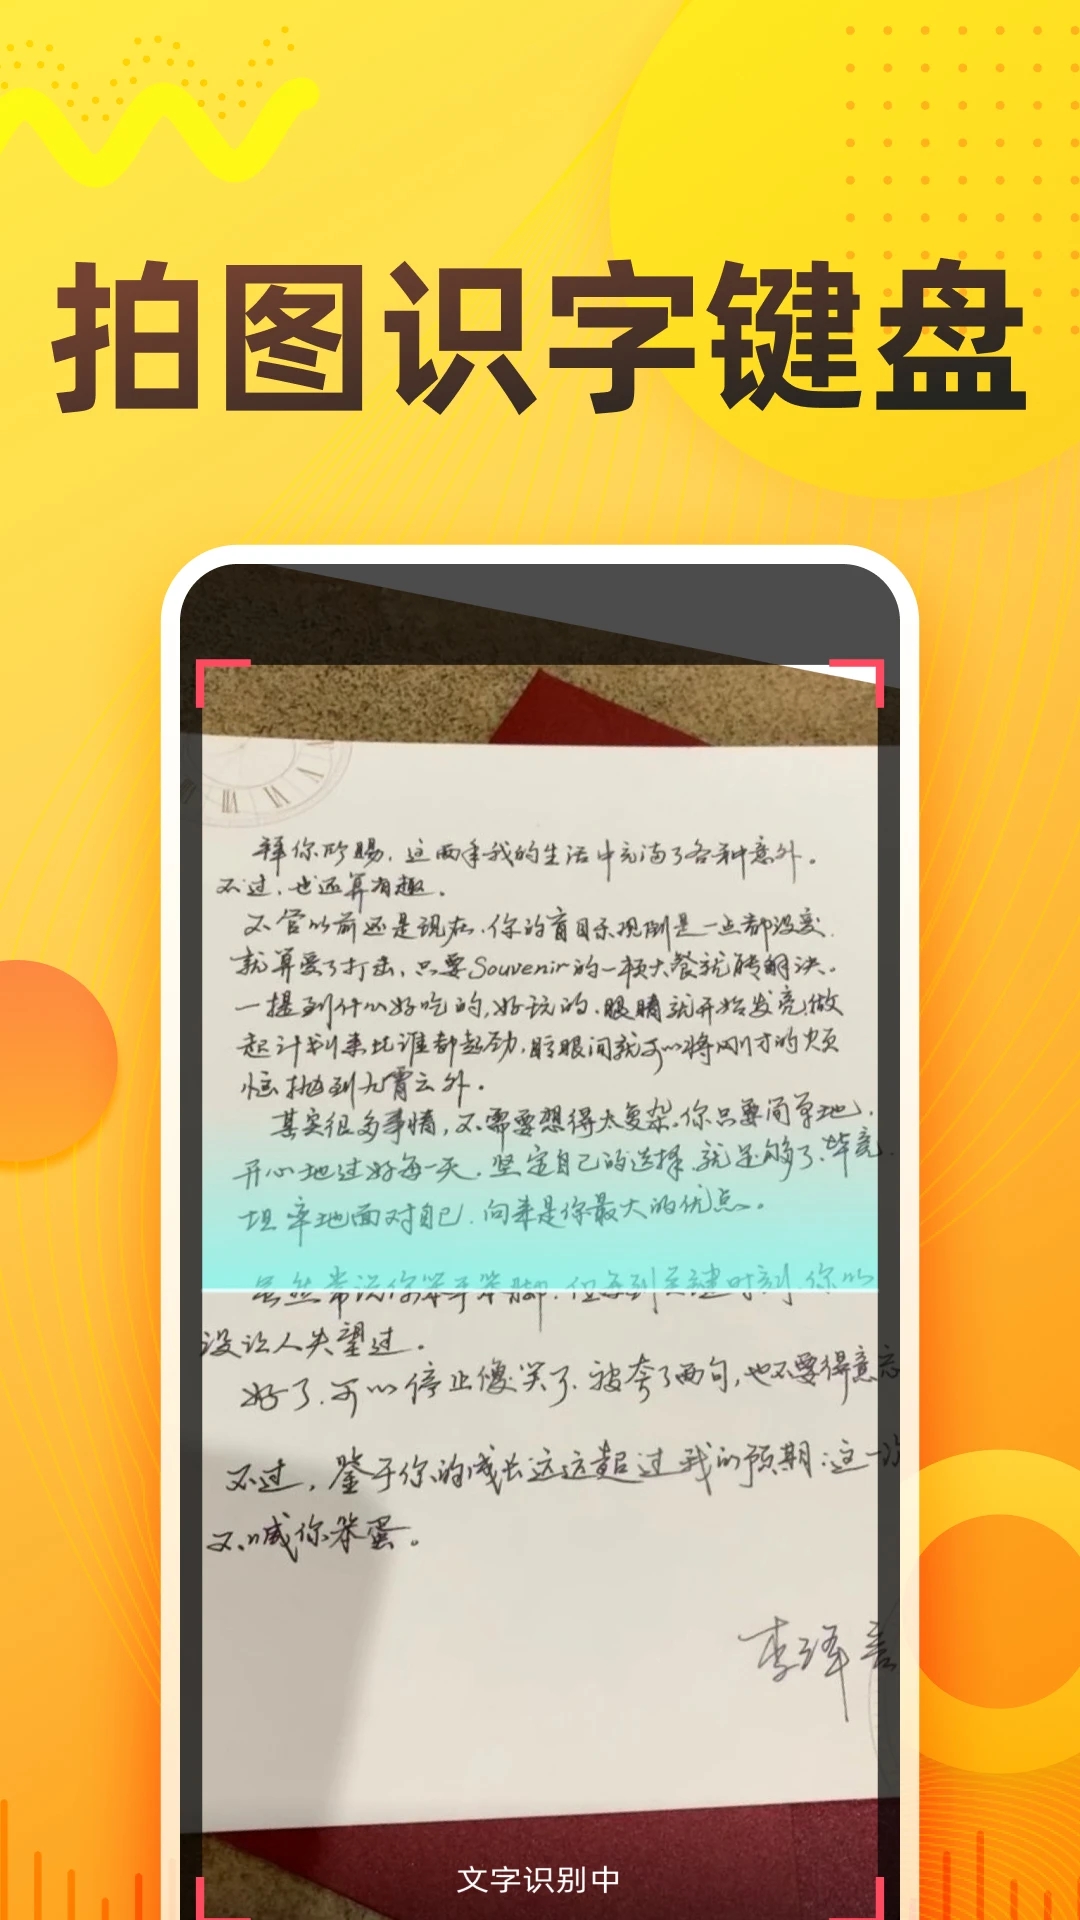 拍图识字键盘
拜你所赐，这两年我的生活中充满了各种意外。
不过，也还算有趣。
不管以前还是现在，你的盲目乐观倒是一点都没变，
就算受了打击，只要Souvenir的一顿大餐就能解决。
一提到什么好吃的，好玩的，眼睛就开始发亮，做
起计划来比谁都起劲，眨眼间就可以将刚才的烦
恼抛到九霄云外。
其实很多事情，不需要想得太复杂。你只要简单地，
开心地过好每一天，坚定自己的选择，就足够了，毕竟，
坦率地面对自己，向来是你最大的优点。
虽然常说你笨手笨脚，但每到关键时刻，你从
没让人失望过。
好了，可以停止傻笑了，被夸了两句，也不要得意忘
不过，鉴于你的成长远远超过我的预期，这一次
不喊你笨蛋。
李泽言
文字识别中